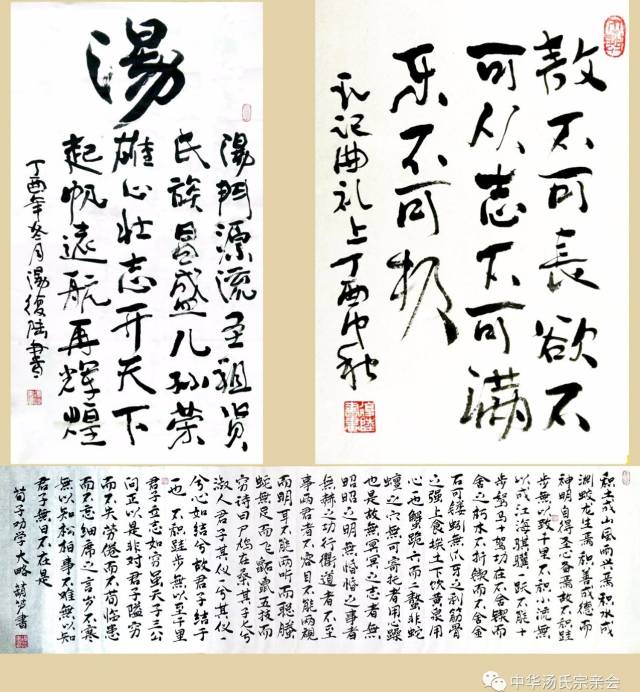 湯
湯門源流圣祖資
氏族昌盛儿孙荣
雄心壮志开天下
起帆远航再辉煌
丁酉年冬月湯俊陆書
敖不可長欲不
可从志不可满
乐不可极
礼记曲礼上丁酉中秋
积土成山風雨兴焉积水成
渊蛟龙生焉积善成德而
神明自得圣心备焉故不积跬
步無以致千里不积小流無
以成江海骐骥一跃不能十
步驽马十驾功在不舍锲而
舍之朽木不折锲而不舍金
石可镂蚓無爪牙之利筋骨
之强上食埃土下饮黄泉用
心也蟹跪六而二螯非蛇
蟺之穴無可寄托者用心躁
也是故無冥冥之志者無
昭昭之明無惛惛之事者
無赫赫之功行衢道者不至
事两君者不容目不能两视
而明耳不能两听而聪螣
蛇無足而飞鼫鼠五技而
穷诗曰尸鸠在桑其子七兮
淑人君子其仪一兮其仪一
兮心如结兮故君子结于一
也 不积跬步無以至千里
君子立志如穷虽天子三公
问正以是非对君子隘穷
而不失劳倦而不苟临患
而不忘细席之言岁不寒
無以知松柏事不難無以知
君子無日不在是
荀子劝学大略 書
中华汤氏宗亲会